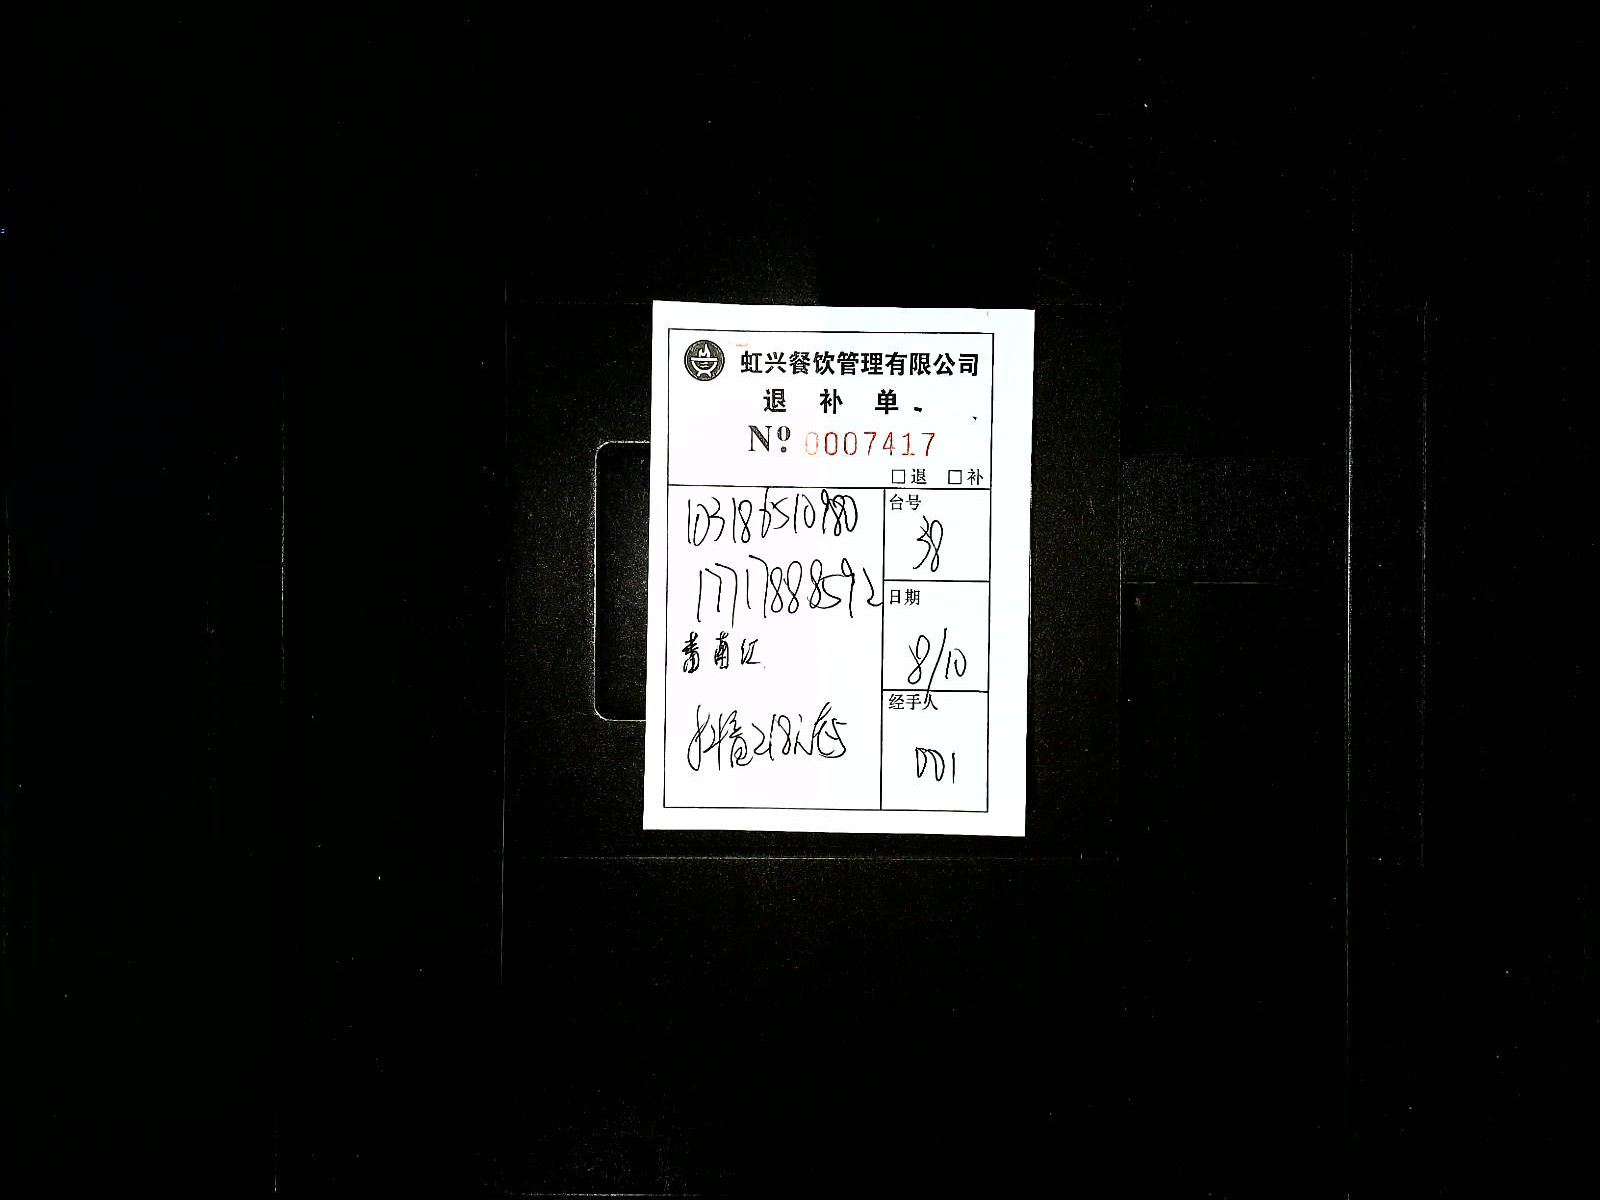 虹兴餐饮管理有限公司
退 补 单
Nº 0007417
□退 □补
103186510980
17717888592
台号
38
日期
8/10
经手人
001
抖音218元